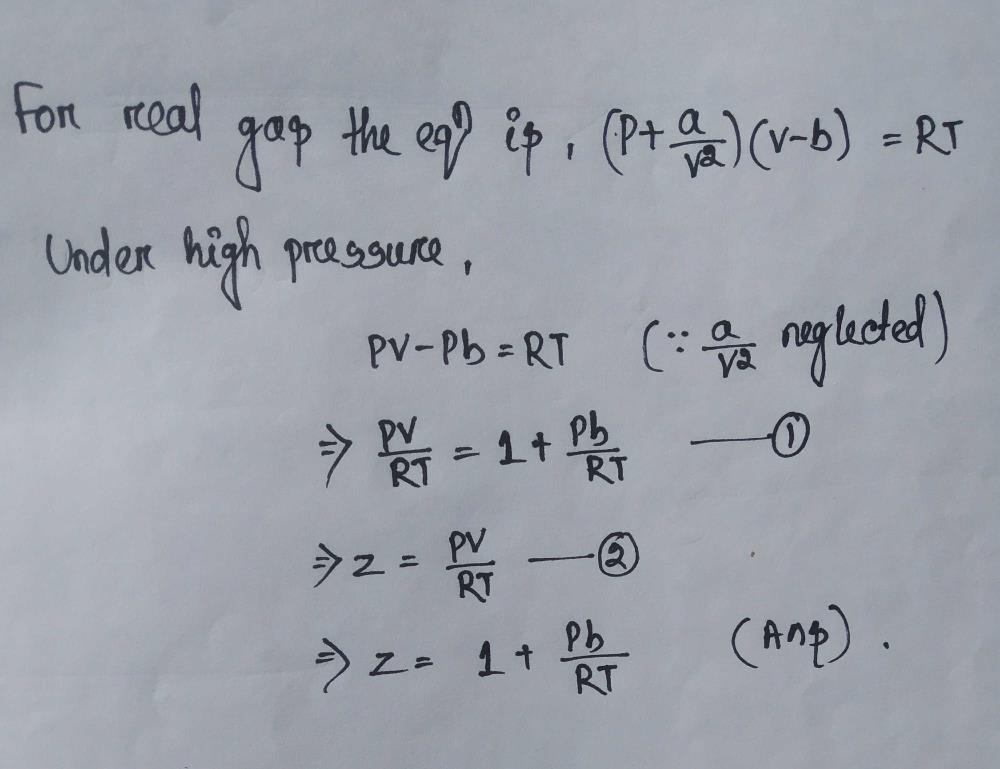 For real gas the eqn is, (P+a/v2)(v-b) = RT
Under high pressure,
PV-Pb=RT (∵ a/v2 neglected)
⇒ PV/RT = 1 + Pb/RT —①
⇒ z = PV/RT —②
⇒ z = 1 + Pb/RT (Ans).